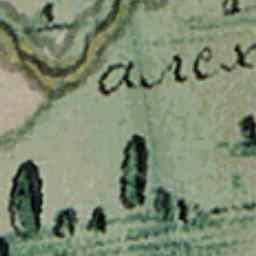 алех